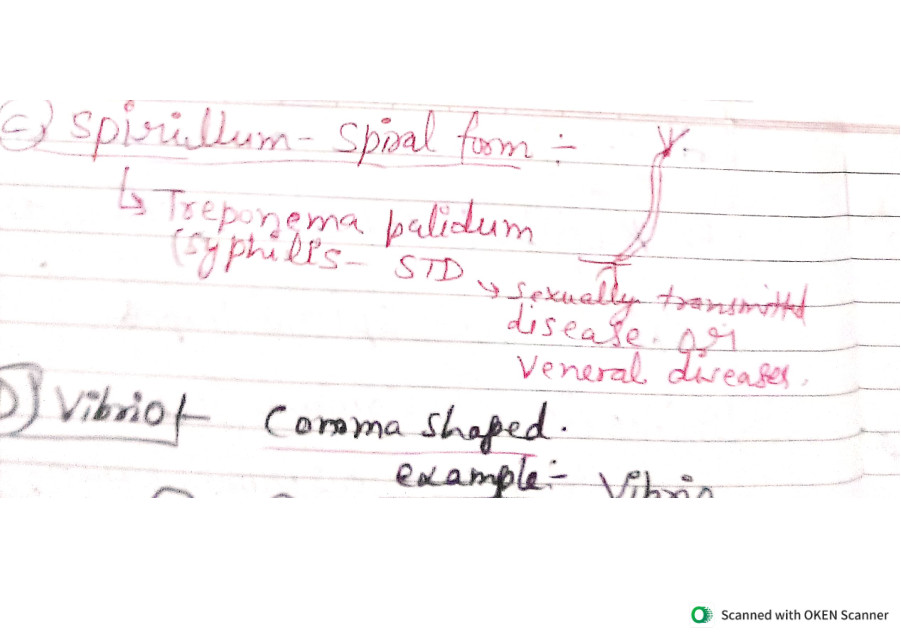 C) Spirillum - Spiral form :-
↳ Treponema palidum
(Syphilis - STD ↘ sexually transmitted
disease. or
Veneral diseases.
D) Vibriot Comma shaped.
example :- Vibrio
Scanned with OKEN Scanner